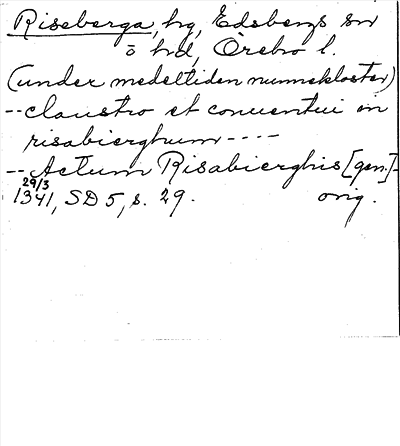 Riseberga, hg, Edsbergs sn
o hd, Örebro l.
(under medeltiden nunnekloster)
-- claustro et conuentui in
risabierghum ----
-- Actum Risabierghis [gen.] -
29/3
1341, SD 5, s. 29. orig.